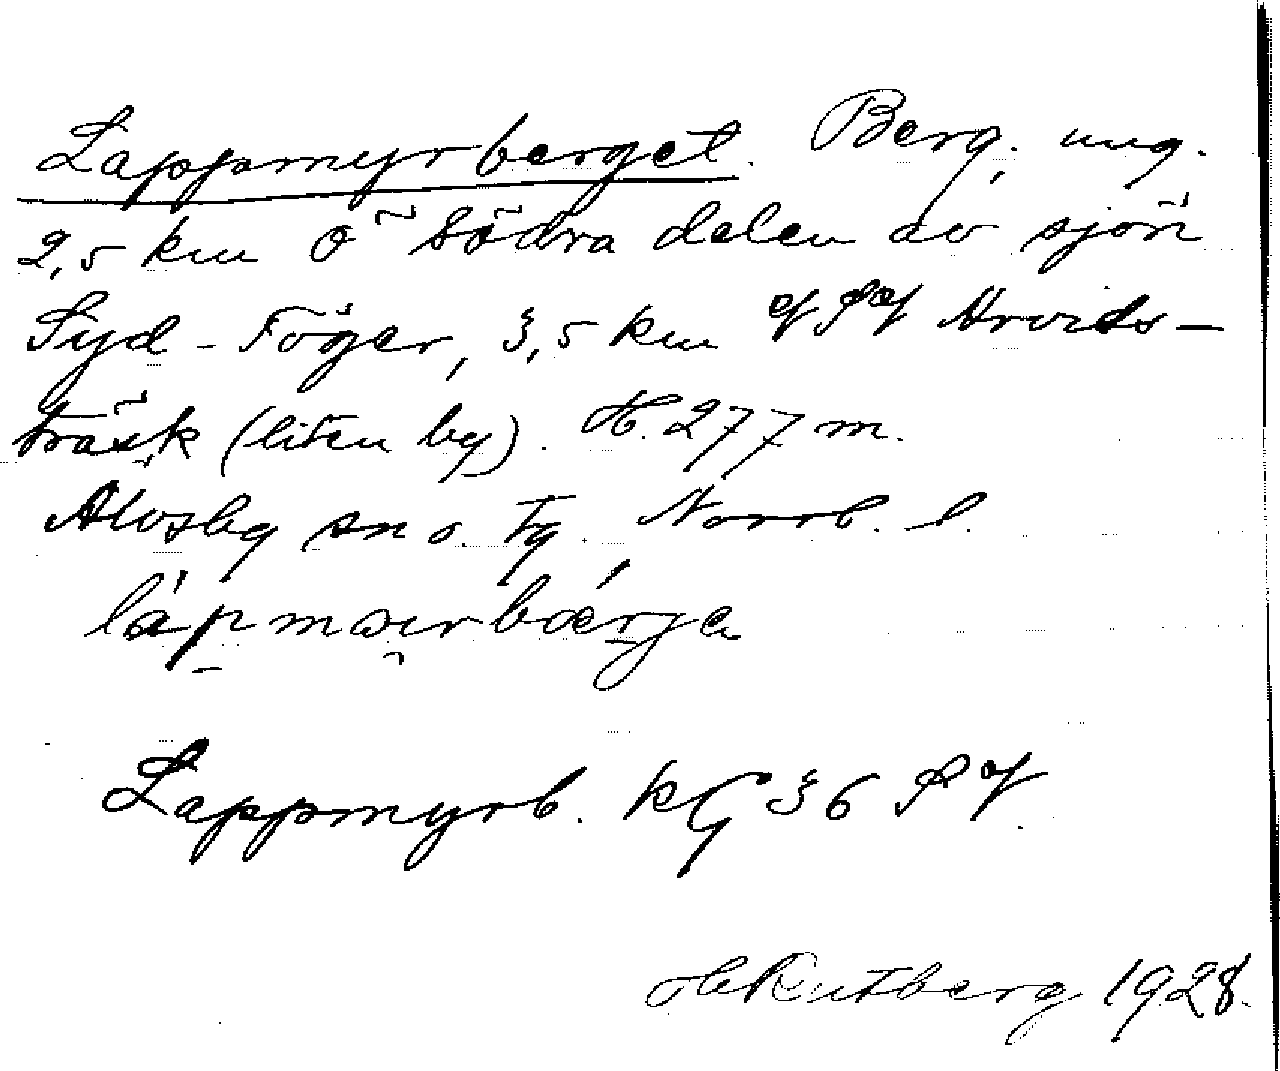 Lappmyrberget. Berg, ung.
2,5 km ö södra delen av sjön
Syd-Töger, 3,5 km Arvids-
träsk (liten by). H. 277 m.
Älvsby sn o. tg. Norrb. l.
Lappmyrb. kG 36
H Rutberg 1928.